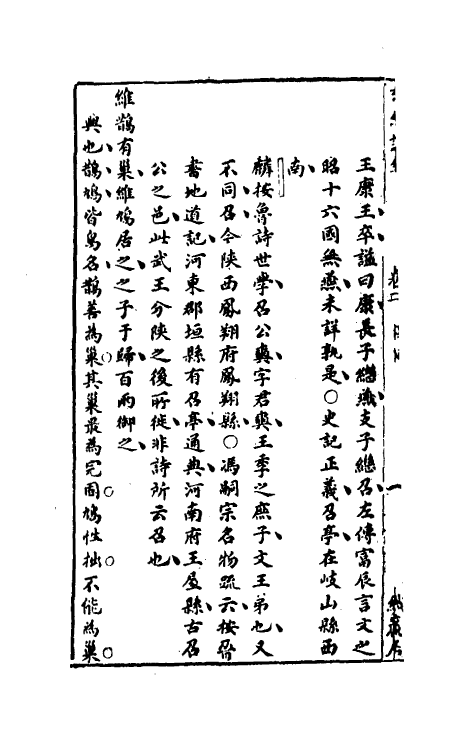 王康王卒諡曰康長子繼燕支子繼召左傳富辰言文之
昭十六國無燕未詳孰是○史記正義召亭在岐山縣西
南
麟按魯詩世學召公奭字君奭王季之庶子文王弟也又
不同召今陝西鳳翔府鳳翔縣○馮嗣宗名物疏云按晉
書地道記河東郡垣縣有召亭通典河南府王屋縣古召
公之邑此武王分陝之後所徙非詩所云召也
維鵲有巢維鳩居之之子于歸百兩御之
興也鵲鳩皆鳥名鵲善為巢其巢最為完固鳩性拙不能為巢